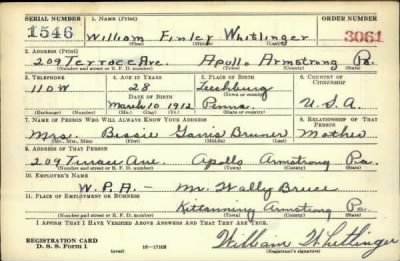 SERIAL NUMBER 1. NAME (Print) ORDER NUMBER
1546 William Finley Whitlinger 3061
(First) (Middle) (Last)
2. ADDRESS (Print)
209 Terrace Ave. Apollo Armstrong Pa.
(Number and street or R. F. D. number) (Town) (County) (State)
3. TELEPHONE 4. AGE IN YEARS 5. PLACE OF BIRTH 6. COUNTRY OF CITIZENSHIP
110W 28 Leechburg
DATE OF BIRTH (Town or county)
March 10 1912 Penna. U.S.A
(Exchange) (No.) (Mo.) (Day) (Yr.) (State or country)
7. NAME OF PERSON WHO WILL ALWAYS KNOW YOUR ADDRESS 8. RELATIONSHIP OF THAT PERSON
Mrs. Bessie Garris Bruner Mother
(Mr., Mrs., Miss) (First) (Middle) (Last)
9. ADDRESS OF THAT PERSON
209 Terrace Ave. Apollo Armstrong Pa.
(Number and street or R. F. D. number) (Town) (County) (State)
10. EMPLOYER'S NAME
W.P.A. - Mr. Wally Bruce
11. PLACE OF EMPLOYMENT OR BUSINESS
Kittanning Armstrong Pa.
(Number and street or R. F. D. number) (Town) (County) (State)
I AFFIRM THAT I HAVE VERIFIED ABOVE ANSWERS AND THAT THEY ARE TRUE.
REGISTRATION CARD William Whitlinger
D. S. S. Form 1 (over) (Registrant's signature)